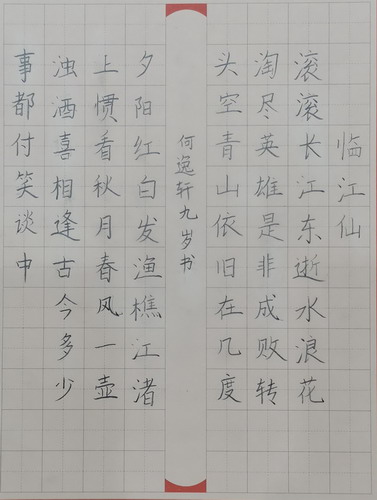 临江仙
滚滚长江东逝水浪花
淘尽英雄是非成败转
头空青山依旧在几度
何逸轩九岁书
夕阳红白发渔樵江渚
上惯看秋月春风一壶
浊酒喜相逢古今多少
事都付笑谈中